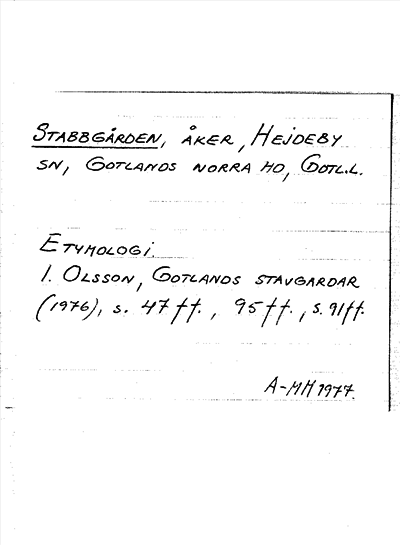 STABBGÅRDEN, ÅKER, HEJDEBY
SN, GOTLANDS NORRA HD, GOTL.L.
ETYMOLOGI
I. OLSSON, GOTLANDS STAVGARDAR
(1976), s. 47 ff., 95 ff., s. 91 ff.
A-MH 1977.